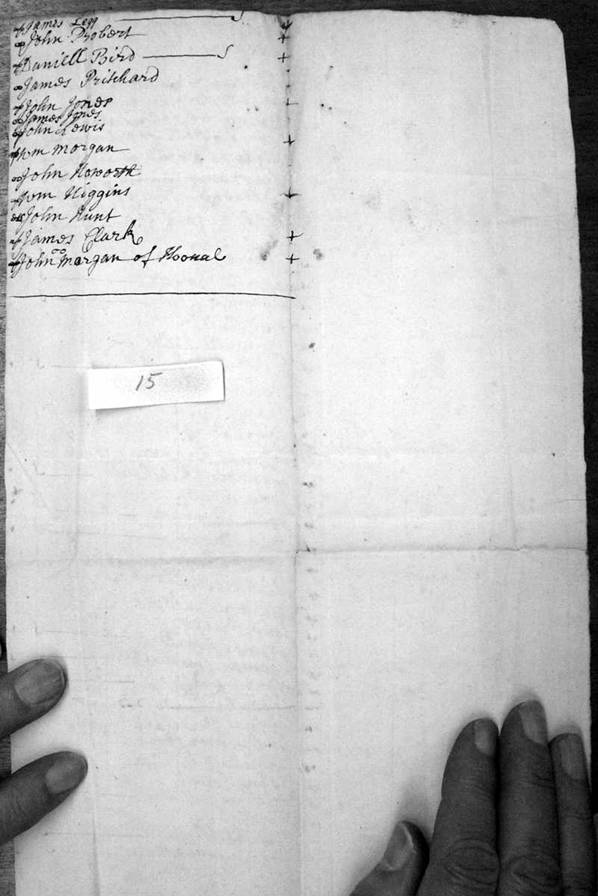 James Legg
John Probert
Daniell Bird
James Prichard
John Jones
James Jones
John Lewis
Wm Morgan
John Howorth
Wm Higgins
John Hunt
James Clark
John Morgan of
15